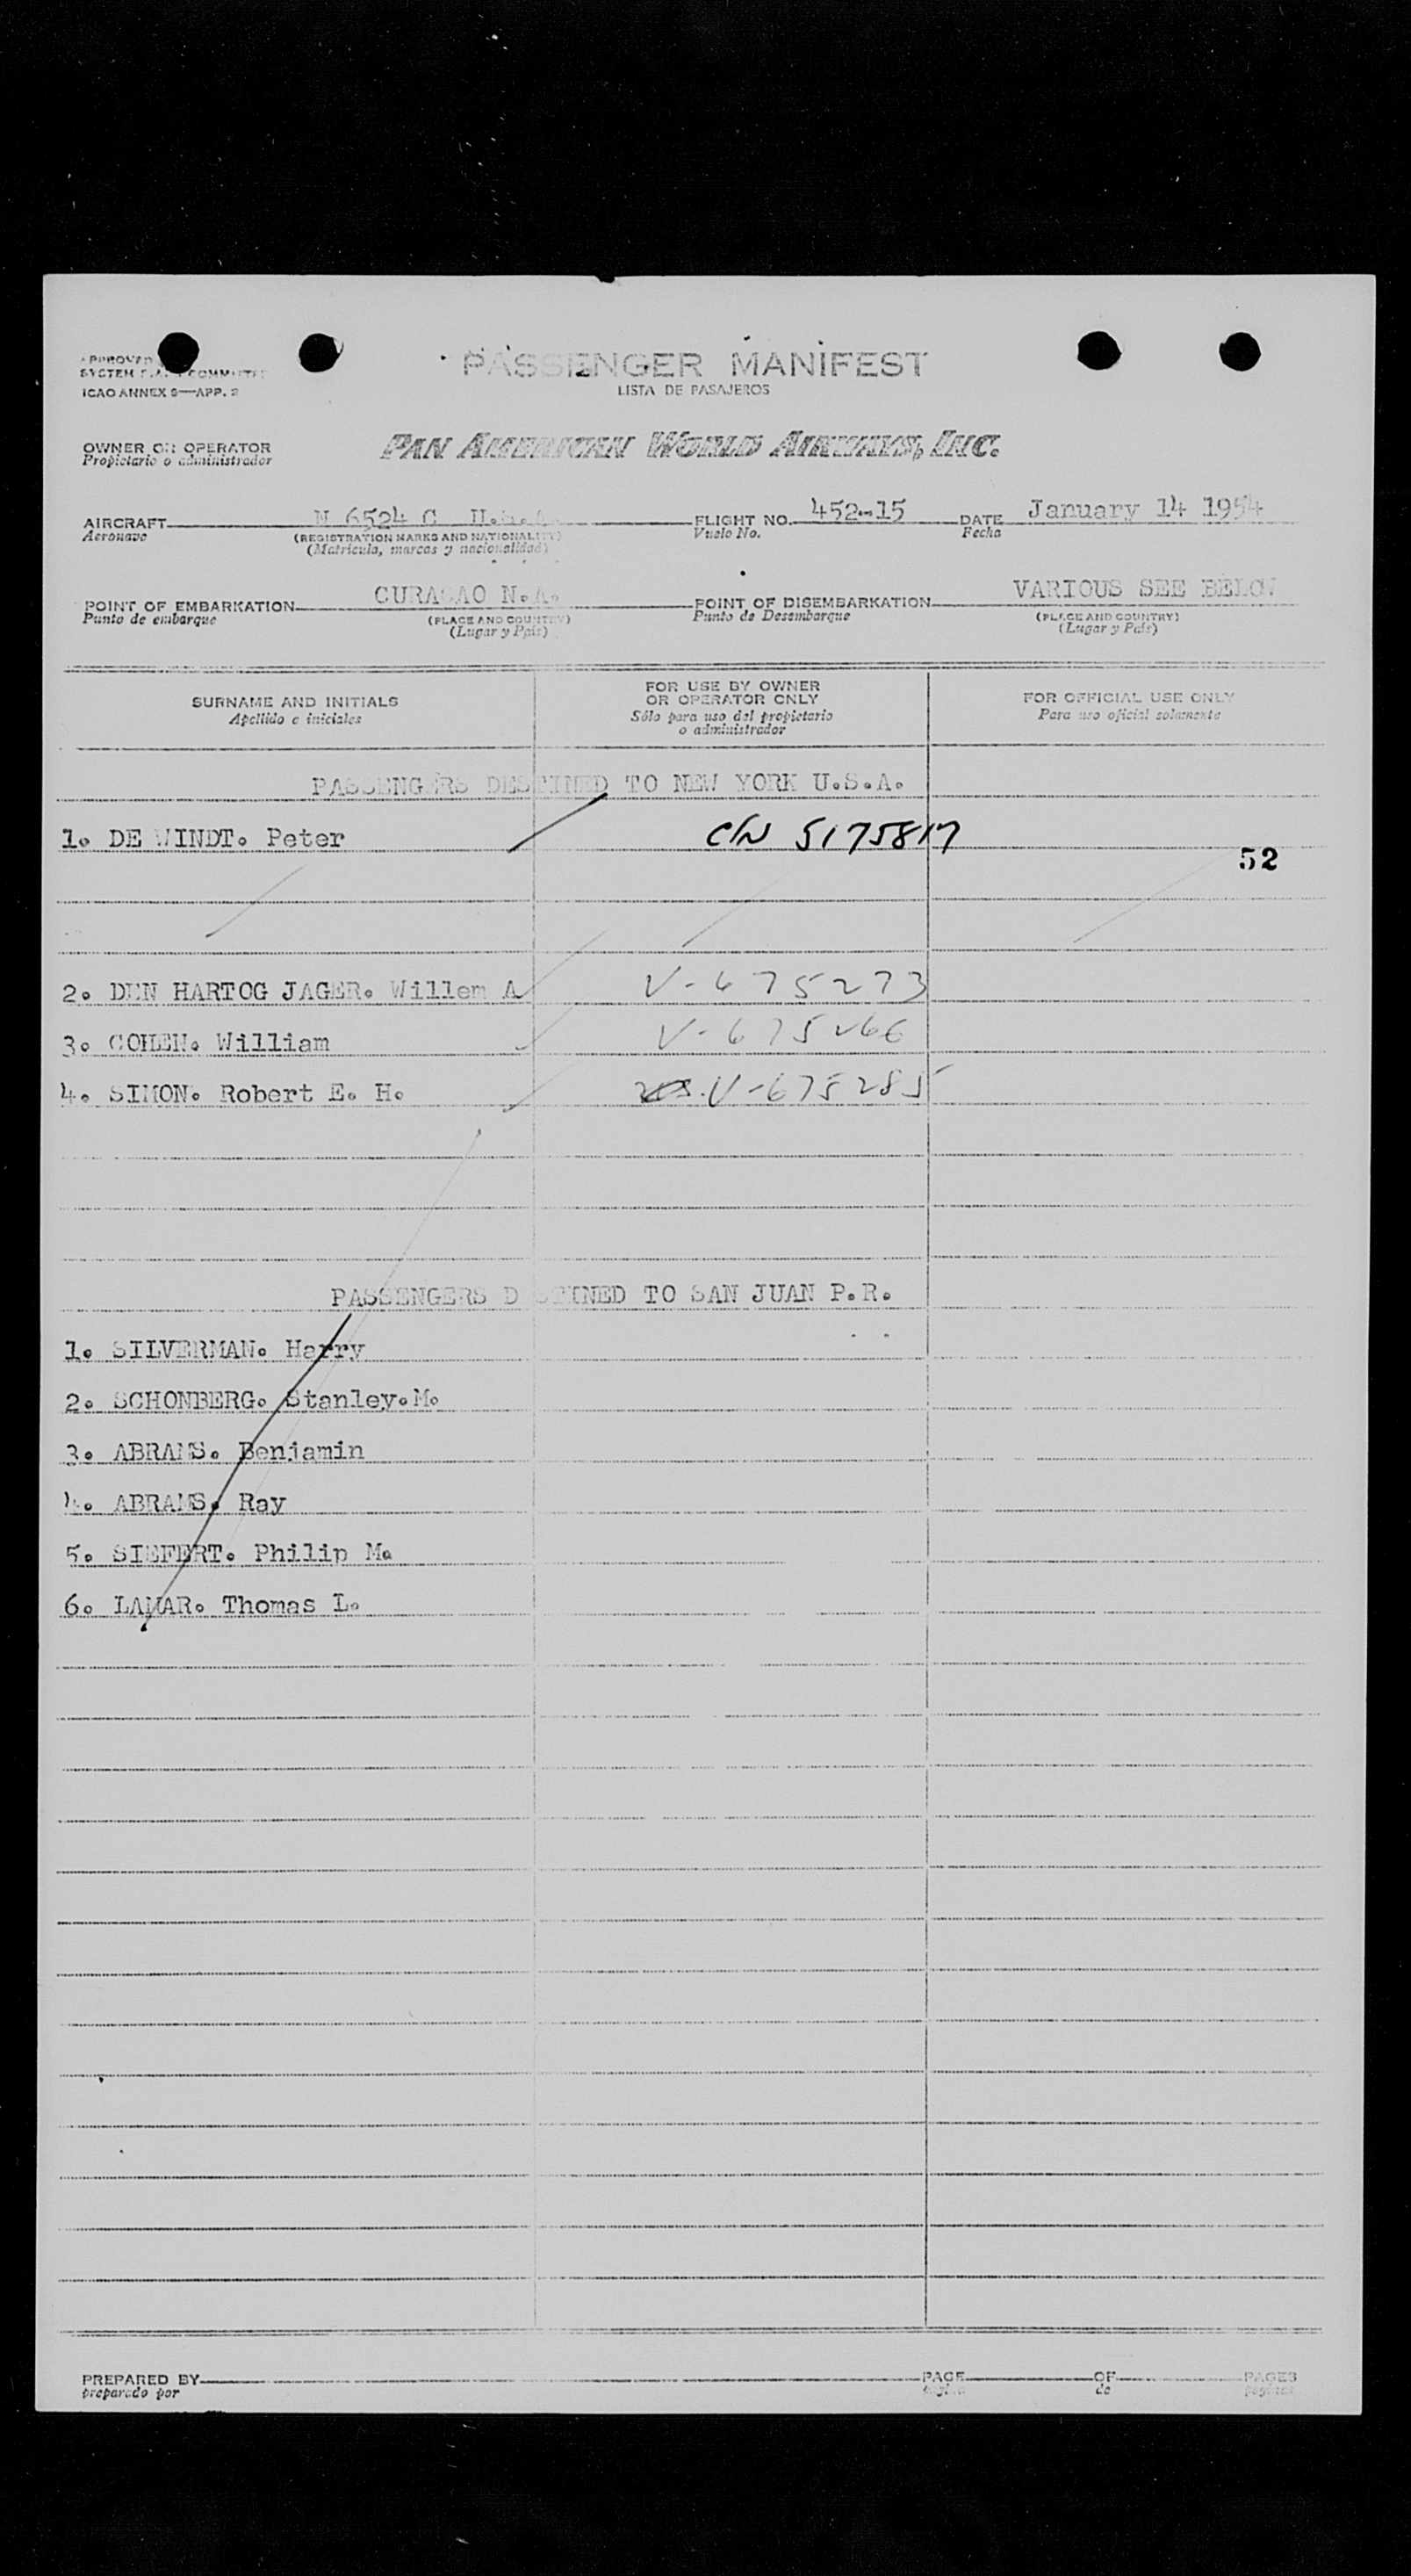 PASSENGER MANIFEST
LISTA DE PASAJEROS
APPROVED
SYSTEM COMMITTEE
ICAO ANNEX 9—APP. 2
OWNER OR OPERATOR PAN AMERICAN WORLD AIRWAYS, INC.
Propietario o administrador
AIRCRAFT N 6524 C U.S.A. FLIGHT NO. 452-15 DATE January 14 1954
Aeronave (REGISTRATION MARKS AND NATIONALITY) Vuelo No. Fecha
(Matricula, marcas y nacionalidad)
POINT OF EMBARKATION CURACAO N.A. POINT OF DISEMBARKATION VARIOUS SEE BELOW
Punto de embarque (PLACE AND COUNTRY) Punto de Desembarque (PLACE AND COUNTRY)
(Lugar y País) (Lugar y País)
SURNAME AND INITIALS FOR USE BY OWNER OR OPERATOR ONLY FOR OFFICIAL USE ONLY
Apellido e iniciales Sólo para uso del propietario o administrador Para uso oficial solamente
PASSENGERS DESTINED TO NEW YORK U.S.A.
1. DE WINDT. Peter C/N 5175817
52
2. DEN HARTOG JAGER. Willem A V-675273
3. COHEN. William V-675266
4. SIMON. Robert E. H. V-675285
PASSENGERS DESTINED TO SAN JUAN P.R.
1. SILVERMAN. Harry
2. SCHONBERG. Stanley.M.
3. ABRAMS. Benjamin
4. ABRAMS. Ray
5. SIEFERT. Philip M.
6. LAMAR. Thomas L.
PREPARED BY PAGE OF PAGES
preparado por página de páginas